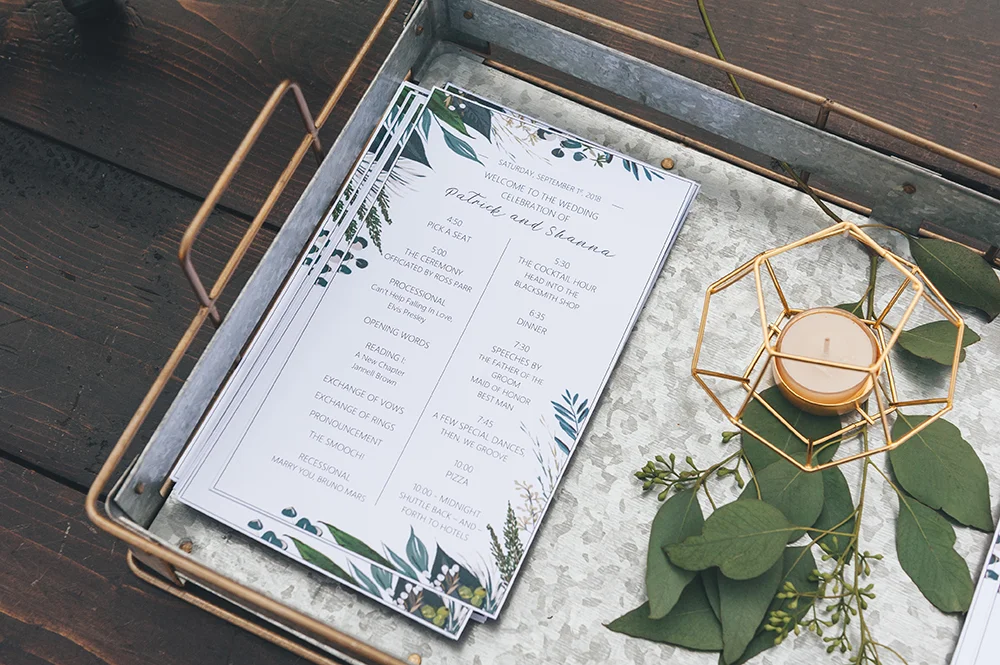 SATURDAY, SEPTEMBER 1ST, 2018
WELCOME TO THE WEDDING
CELEBRATION OF
Patrick and Shanna
4:50
PICK A SEAT
5:00
THE CEREMONY
OFFICIATED BY ROSS PARR
PROCESSIONAL
Can't Help Falling In Love,
Elvis Presley
OPENING WORDS
READING I:
A New Chapter
Jannell Brown
EXCHANGE OF VOWS
EXCHANGE OF RINGS
PRONOUNCEMENT
THE SMOOCH!
RECESSIONAL
MARRY YOU, BRUNO MARS
5:30
THE COCKTAIL HOUR
HEAD INTO THE
BLACKSMITH SHOP
6:35
DINNER
7:30
SPEECHES BY
THE FATHER OF THE
GROOM,
MAID OF HONOR
BEST MAN
7:45
A FEW SPECIAL DANCES,
THEN, WE GROOVE
10:00
PIZZA
10:00 - MIDNIGHT
SHUTTLE BACK – AND -
FORTH TO HOTELS